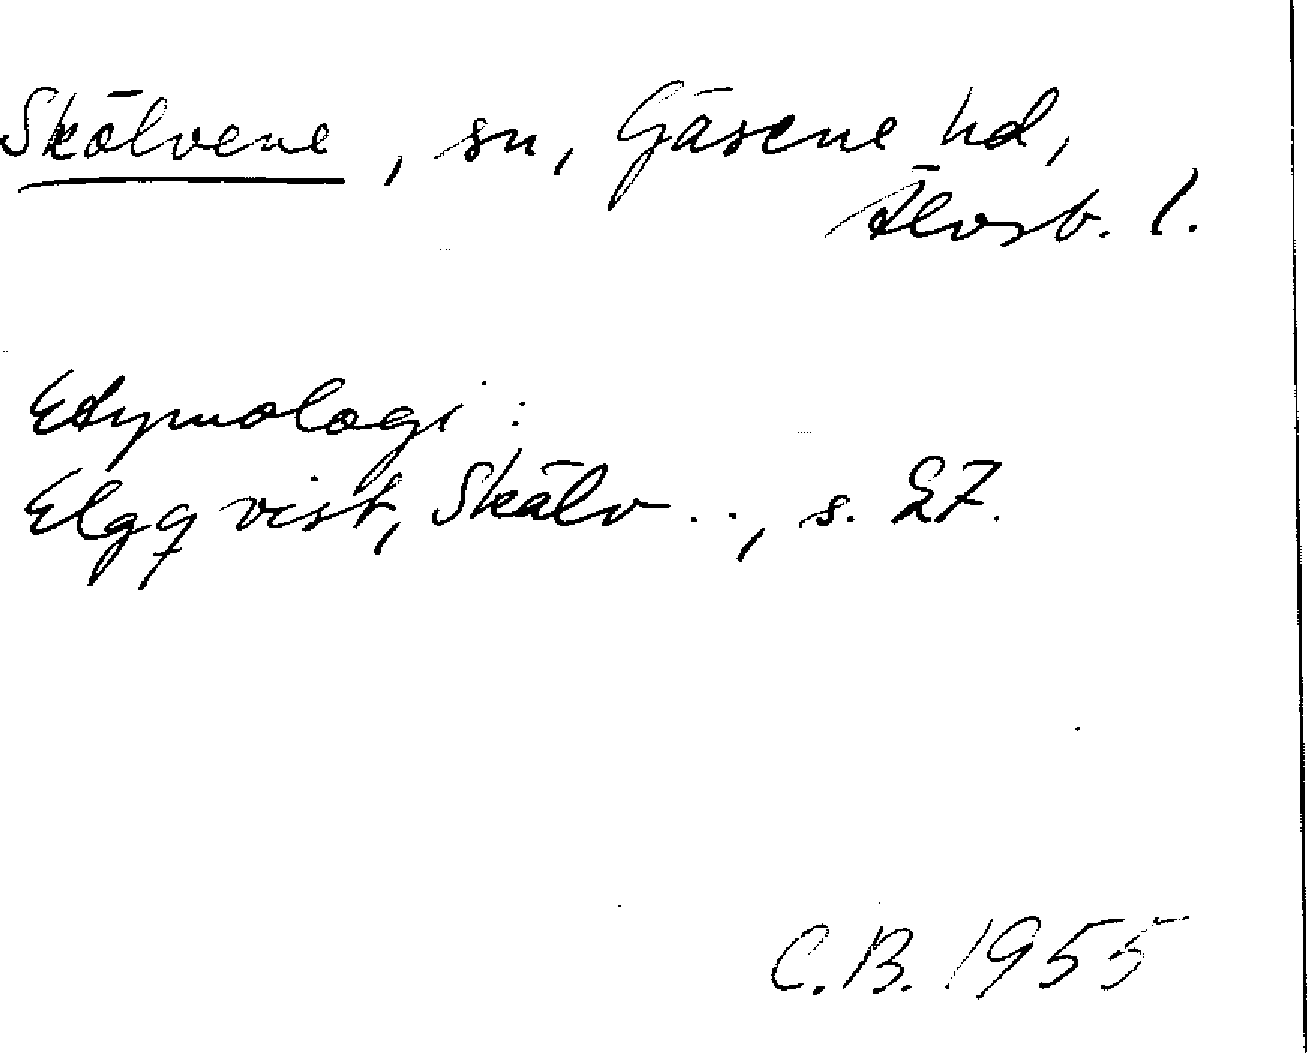 Skölvene, sn, Gäsene hd,
Älvsb. l.
Etymologi:
Elgqvist, Skälv..., s. 27.
C.B. 1955